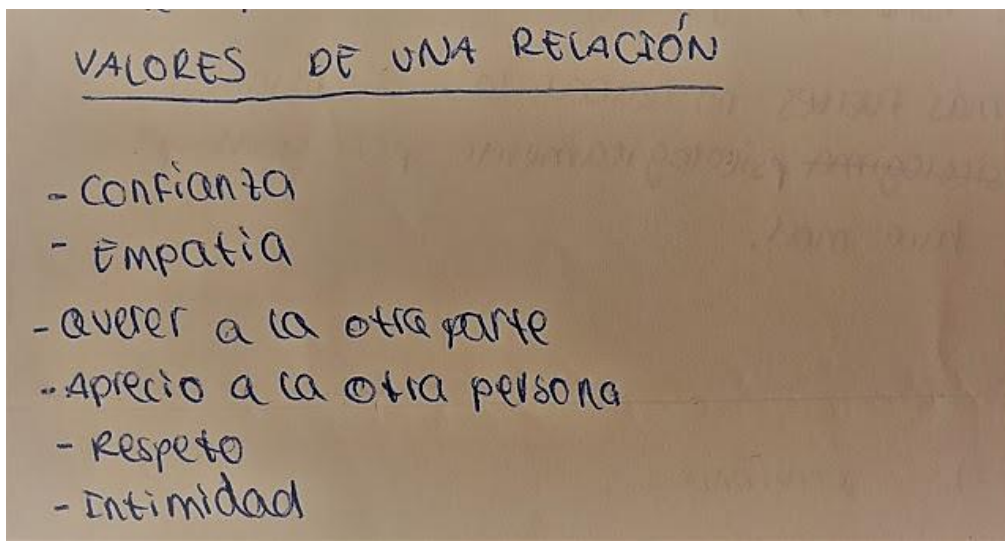 VALORES DE UNA RELACIÓN
- Confianza
- Empatia
- Querer a la otra parte
- Aprecio a la otra persona
- Respeto
- Intimidad